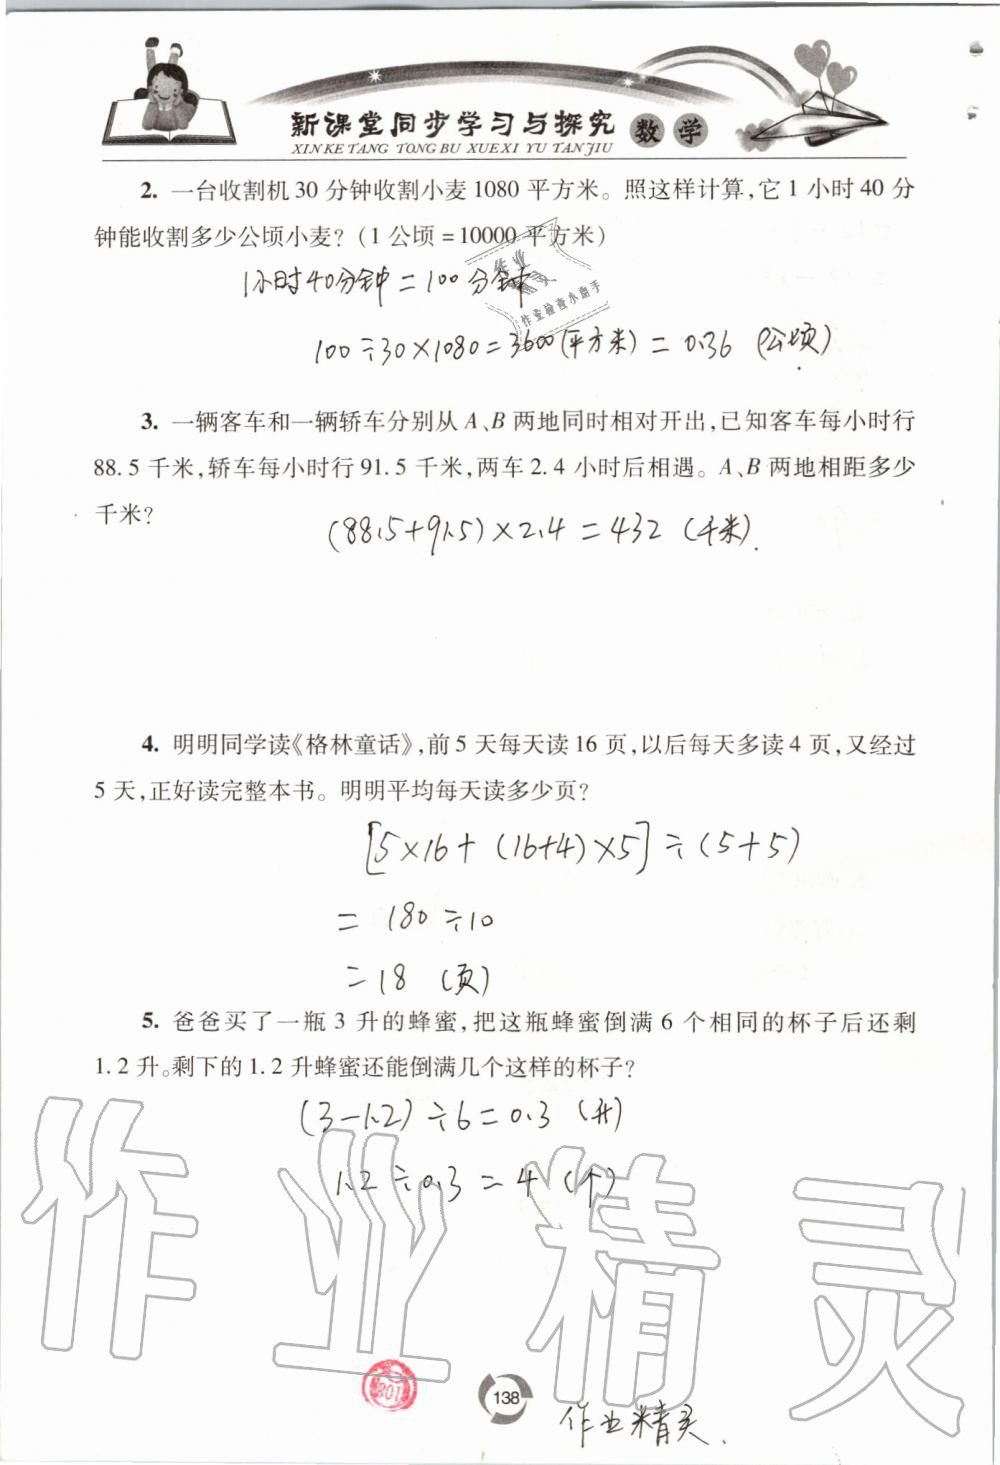 新课堂同步学习与探究 数学
XIN KE TANG TONG BU XUE XI YU TAN JIU
2. 一台收割机30分钟收割小麦1080平方米。照这样计算,它1小时40分
钟能收割多少公顷小麦?(1公顷=10000平方米)
1小时40分钟=100分钟
作业
作业检查小助手
100÷30×1080=3600(平方米)=0.36(公顷)
3. 一辆客车和一辆轿车分别从A、B两地同时相对开出,已知客车每小时行
88.5千米,轿车每小时行91.5千米,两车2.4小时后相遇。A、B两地相距多少
千米?
(88.5+91.5)×2.4=432(千米).
4. 明明同学读《格林童话》,前5天每天读16页,以后每天多读4页,又经过
5天,正好读完整本书。明明平均每天读多少页?
[5×16+(16+4)×5]÷(5+5)
=180÷10
=18(页)
5. 爸爸买了一瓶3升的蜂蜜,把这瓶蜂蜜倒满6个相同的杯子后还剩
1.2升。剩下的1.2升蜂蜜还能倒满几个这样的杯子?
(3-1.2)÷6=0.3(升)
1.2÷0.3=4(个)
作业精灵
138
作业精灵.